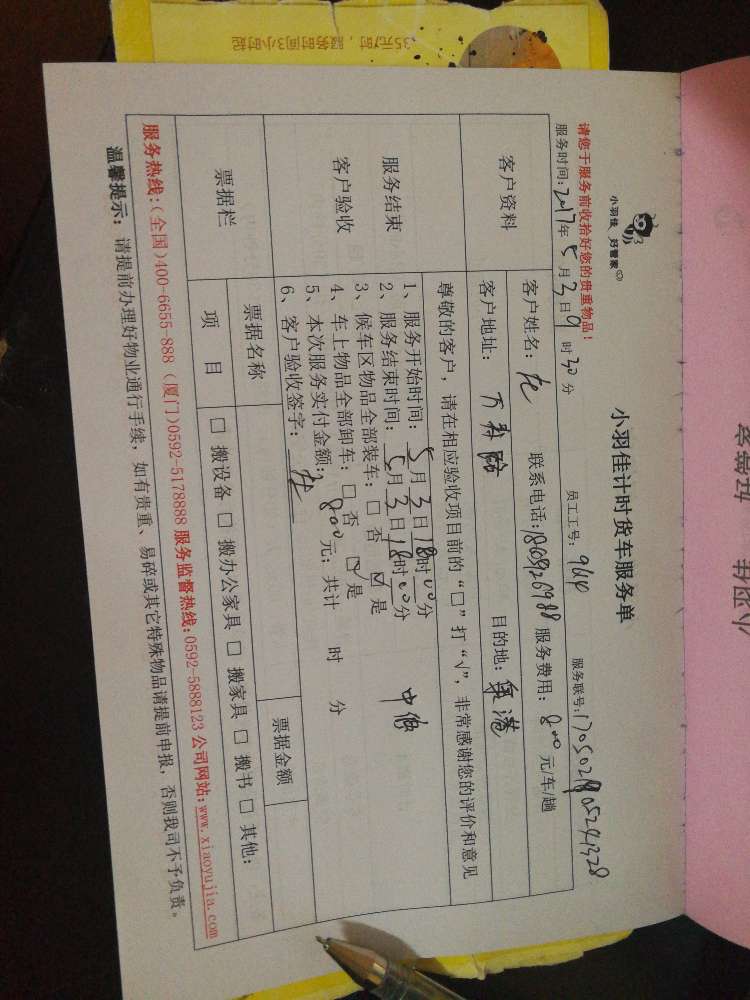 35元/时，服务时间3小时起
小羽佳 好管家
小羽佳计时货车服务单
请您于服务前收拾好您的贵重物品！
员工工号：
服务联号：
服务时间：2017年5月3日9时30分
客户资料
客户姓名：
联系电话：
服务费用：800元/车/趟
客户地址：
目的地：
服务结束
客户验收
尊敬的客户，请在相应验收项目前的“□”打“√”，非常感谢您的评价和意见
1、服务开始时间：5月3日18时00分
2、服务结束时间：5月3日18时00分
3、候车区物品全部装车：□否 ☑是
4、车上物品全部卸车：□否 ☑是
5、本次服务实付金额：800元；共计 时 分
6、客户验收签字：
票据栏
票据名称
票据金额
项 目
□搬设备 □搬办公家具 □搬家具 □搬书 □其他：
服务热线：（全国）400-6655-888（厦门）0592-5178888 服务监督热线：0592-5888123 公司网站：www.xiaoyujia.com
温馨提示：请提前办理好物业通行手续，如有贵重、易碎或其它特殊物品请提前申报，否则我司不予负责。